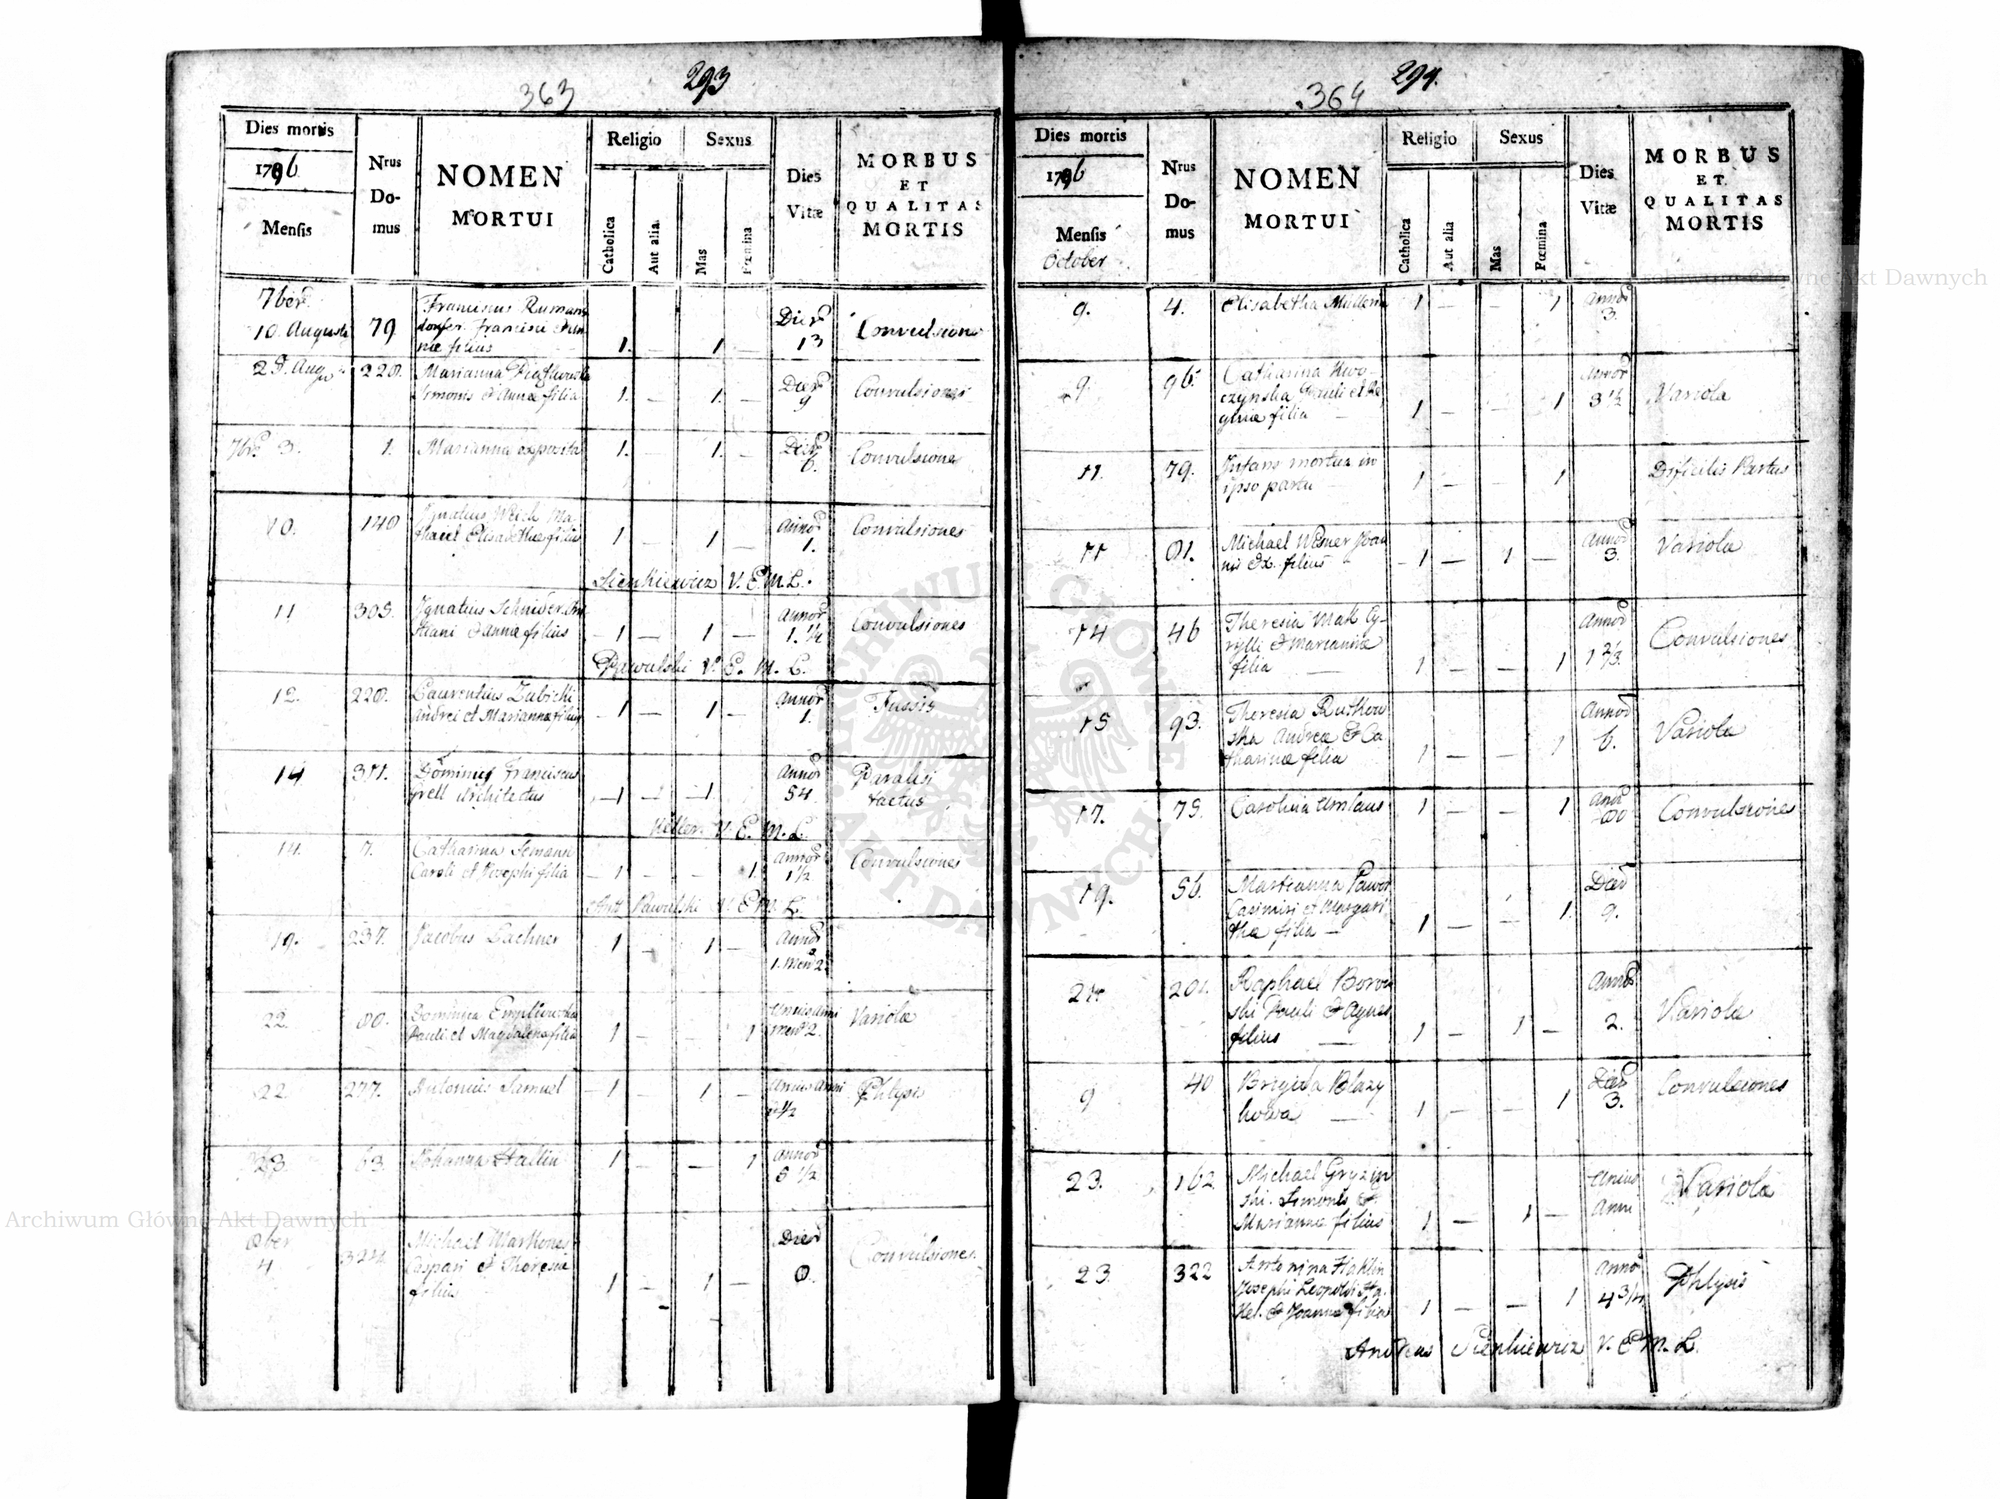 363 293
Dies mortis
1796
Mensis
Nrus Domus
NOMEN MORTUI
Religio
Catholica
Aut alia
Sexus
Mas
Fœmina
Dies Vitæ
MORBUS ET QUALITAS MORTIS
7bris
10. Augusti 79 Franciscus
Francisci
filius 1. — 1. — Dier 13 Convulsiones
28. Aug 228. Marianna
Simonis & Annæ filia 1. 1. — Dier 9 Convulsiones
7bris 3. 1. Marianna exposita 1. — 1. — Dier 6. Convulsiones
10. 140 Ignatius Weich
Elisabethae filius 1 — 1 — Annor 1. Convulsiones
Sienkiewicz V. E. M. L.
11 305. Ignatius Schnider
& Annæ filius 1 — 1 — Annor 1. 1/2 Convulsiones
Pawulski V. E. M. L.
12. 228. Laurentius Zubicki
Andrei et Mariannæ filius 1 — 1 — Annor 1. Tussis
14 311. Dominus Franciscus
Architectus 1 — 1 Annor 54 Paralisi tactus
Keller V. E. M. L.
14. 7. Catharina
Caroli et Josephi filia 1 — — 1. Annor 1 1/2 Convulsiones
Ant Pawulski V. E. M. L.
19. 237. Jacobus Lachner 1 — 1 — Annor 1. Men 2
22. 80. Dominica
Pauli et Magdalena filia 1 — — 1 Unius anni Men 2. Variola
22. 277. Antonius Samuel 1 — 1 — Unius Anni 1/2 Phtysis
23. 63. Johanna Hallin 1 — — 1 Annor 5 1/2
8ber
4 324 Michael
Caspari et Theresiæ
filius 1 1 — Dier 8. Convulsiones
364 294.
Dies mortis
1796
Mensis
October
Nrus Domus
NOMEN MORTUI
Religio
Catholica
Aut alia
Sexus
Mas
Fœmina
Dies Vitæ
MORBUS ET QUALITAS MORTIS
9. 4. Elisabetha Müllerin 1 — — 1 Annor 3.
9. 96. Catharina Kwo-
czynska Pauli et Re
ginæ filia — 1 — — 1 Annor 3 1/2 Variola
11. 79. Infans mortua in
ipso partu 1 — — 1 Dificilis Partus
11 81. Michael Wisner Joan
nis filius 1 — 1 — Annor 3. Variola
14 46 Theresia Mak Cy-
rylli & Marianna
filia — 1 — — 1 Annor 1 2/3. Convulsiones
15 93. Theresia Rutkow
ska Andrea & Ca
tharinæ filia 1 — — 1 Annor 6. Variola
17. 75. Carolina Umlauf 1 — — 1 Convulsiones
19. 56. Marianna
Casimiri et Margari
thæ filia — 1 — — 1. Dier 9.
21 201. Raphael Borow
ski Pauli & Agnes
filius — 1 — 1 — Annor 2. Variola
9 40 Brigida Blazy
kowa — 1 — — 1 Dier 3. Convulsiones
23. 162. Michael Gryzin
ski. Simonis &
Mariannæ filius 1 — 1 — Unius Anni Variola
23. 322 Antonina Hahlin
Josephi Leopoldi Ha-
kel. & Joannæ filia 1 — — 1 Annor 4 3/4 Phtysis
Andreas Sienkiewicz V. E. M. L.
ARCHIWUM GŁÓWNE AKT DAWNYCH
Archiwum Główne Akt Dawnych
Archiwum Główne Akt Dawnych